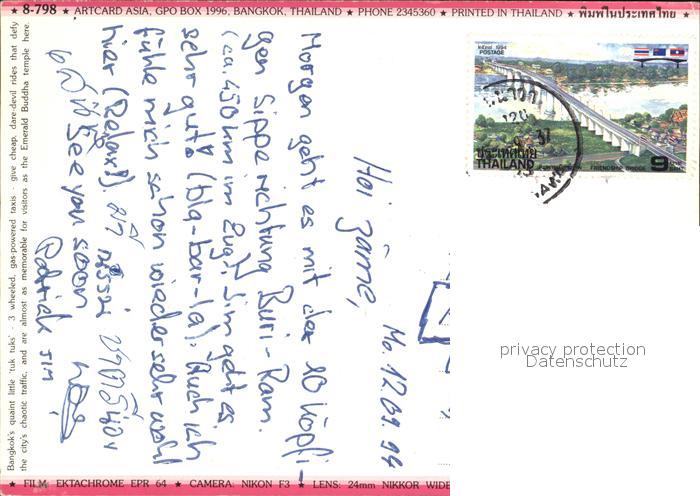 ★ 8-798 ★ ARTCARD ASIA, GPO BOX 1996, BANGKOK, THAILAND ★ PHONE 2345360 ★ PRINTED IN THAILAND ★ พิมพ์ในประเทศไทย ★
Bangkok's quaint little 'tuk tuks' - 3 wheeled, gas-powered taxis - give cheap, dare-devil rides that defy
the city's chaotic traffic, and are almost as memorable for visitors as the Emerald Buddha temple here
Mo. 12.09.94
Hoi zäme,
Morgen geht es mit der 10 köpfi-
gen Sippe richtung Buri-Ram.
(ca. 450 km im Zug). Jim geht es
sehr gut! (bla-bar-la). Auch ich
fühle mich schon wieder sehr wohl
hier (Relax!)
See you soon
Patrick Jim
POSTAGE
1994
ประเทศไทย
THAILAND
FRIENDSHIP BRIDGE
9
37
privacy protection
Datenschutz
★ FILM: EKTACHROME EPR 64 ★ CAMERA: NIKON F3 ★ LENS: 24mm NIKKOR WIDE